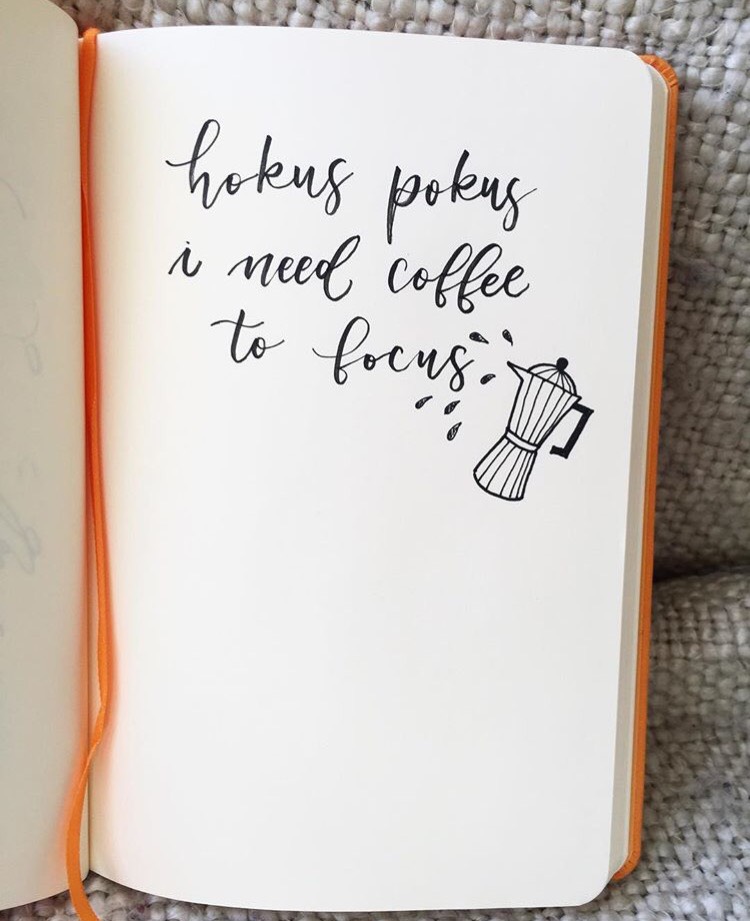 hokus pokus
i need coffee
to focus